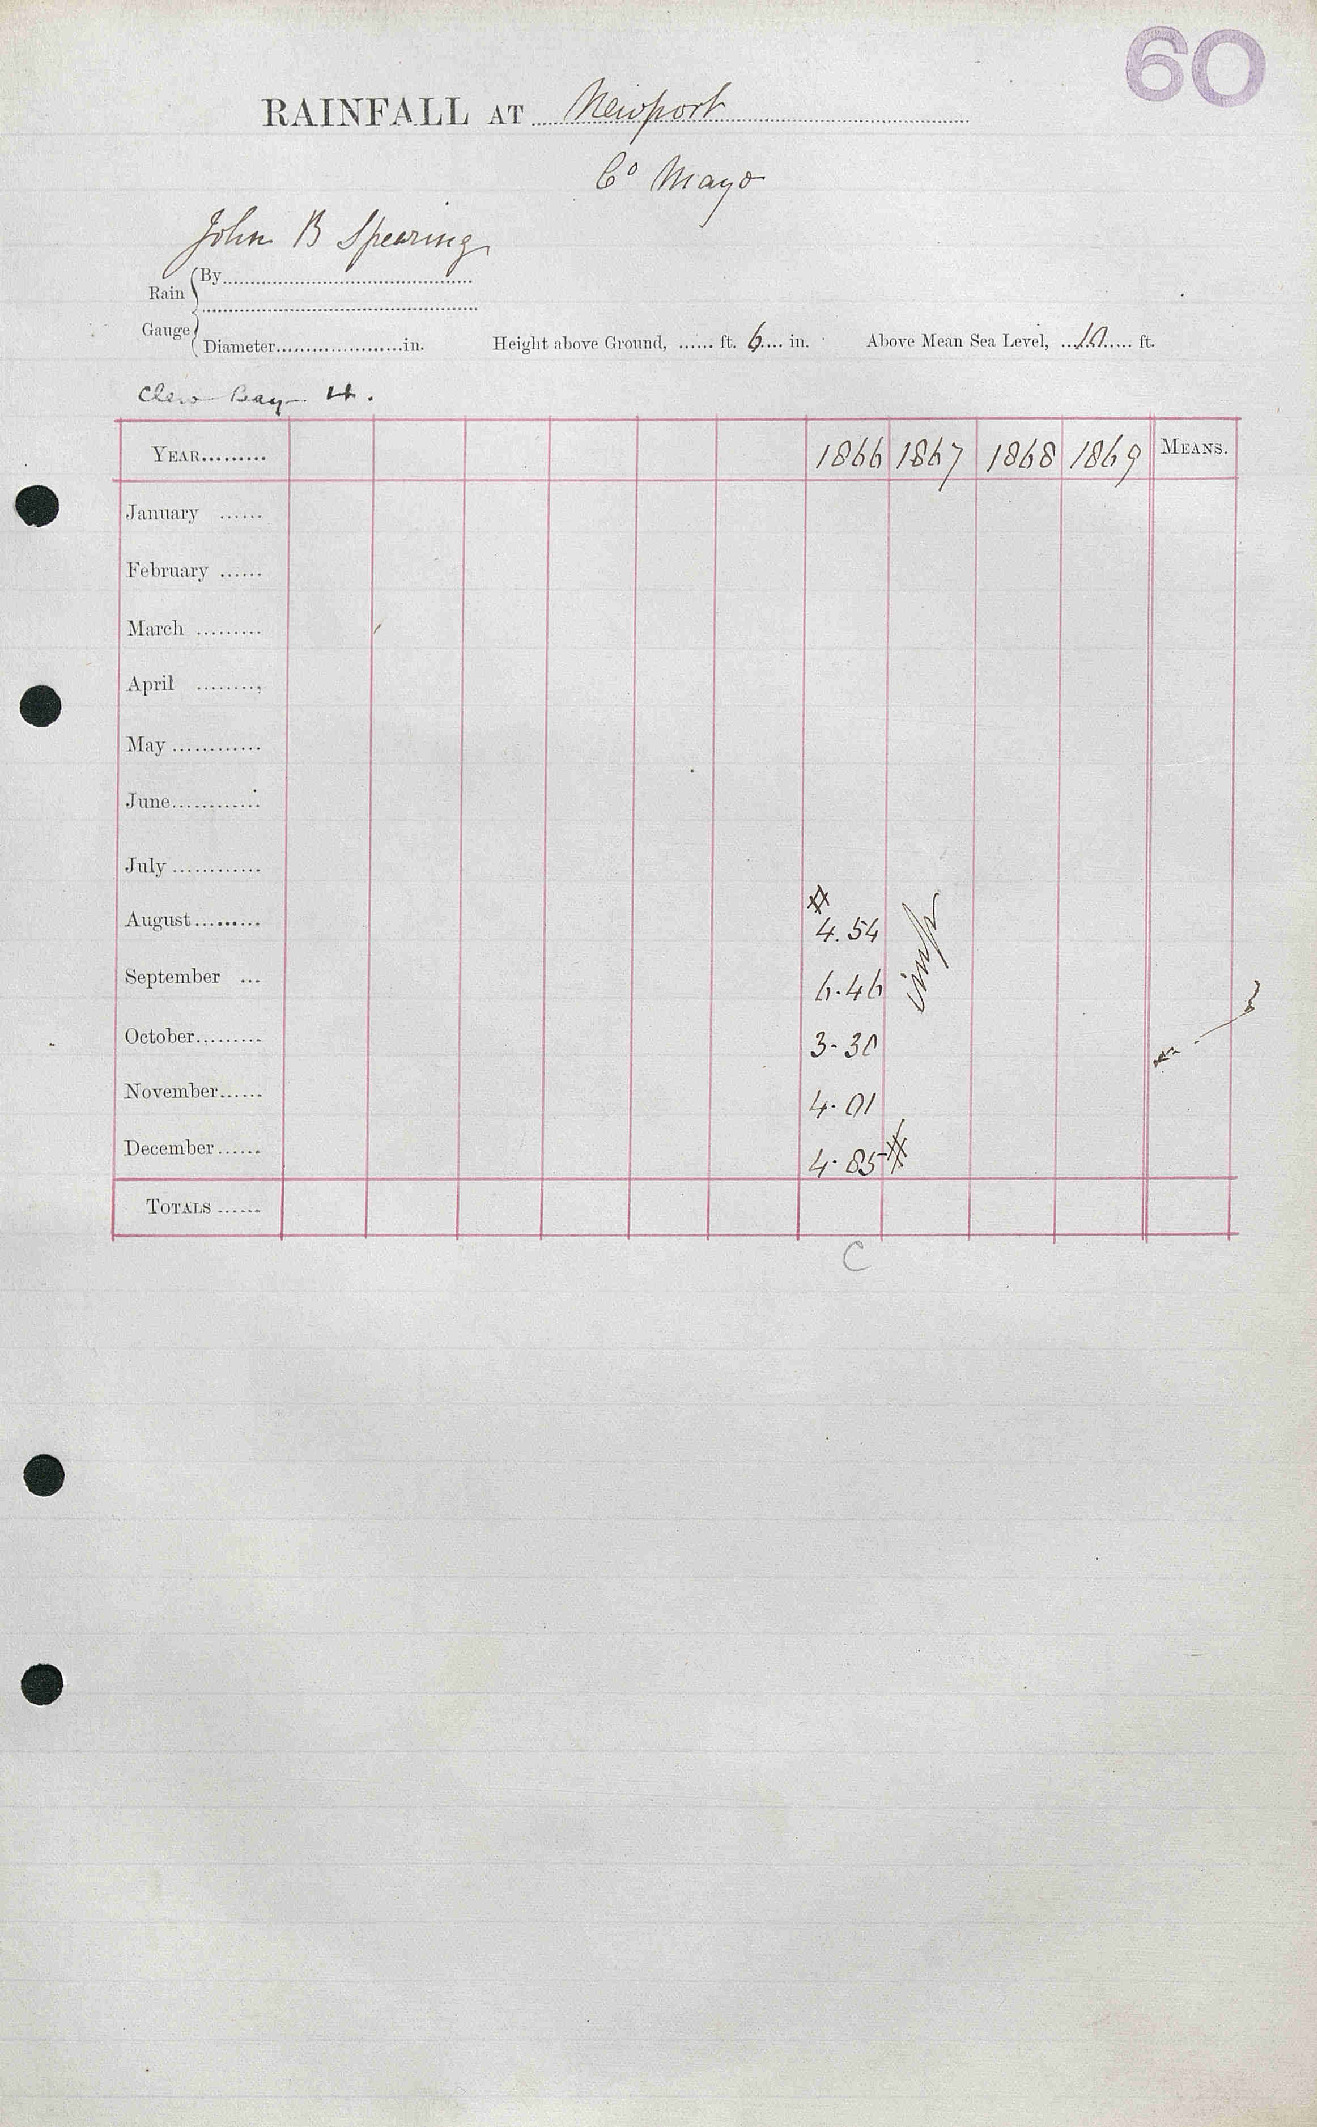 60
RAINFALL AT Newport
Co Mayo
John B Spearing
Rain Gauge { By
Diameter in. Height above Ground, ...... ft. 6 in. Above Mean Sea Level, 10 ft.
Clew Bay H.
YEAR 1866 1867 1868 1869 MEANS.
January
February
March
April
May
June
July
August 4.54
September 6.46 imp
October 3.30
November 4.01
December 4.85
TOTALS
C